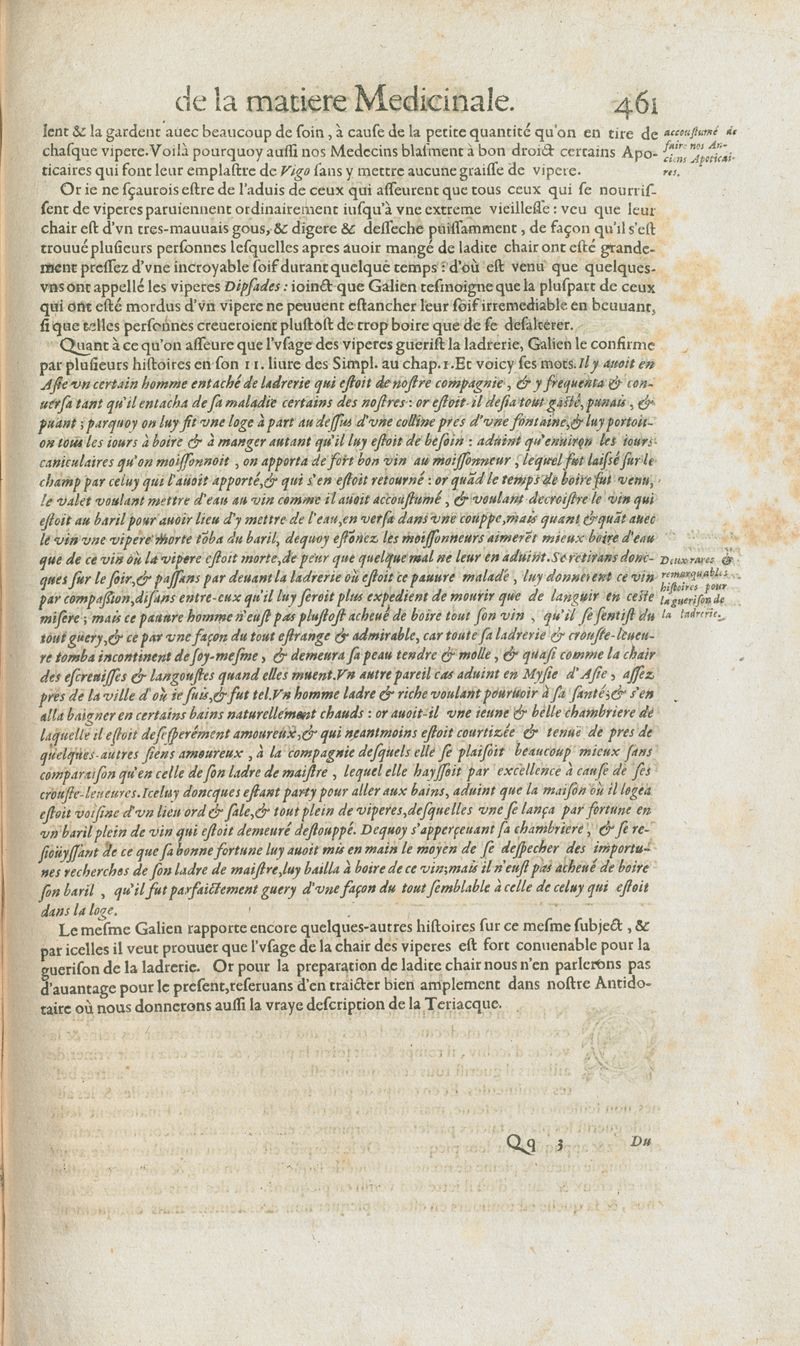 de la matiere Medicinale. 461
lent & la gardent auec beaucoup de ſoin, à cauſe de la petite quantité qu'on en tire de
chaſque vipere. Voilà pourquoy auſſi nos Medecins blaſment à bon droict certains Apo-
ticaires qui font leur emplaſtre de Vigo ſans y mettre aucune graiſſe de vipere.
accouſtumé de
faire nos An-
ciens Apoticai-
res.
Or ie ne ſçaurois eſtre de l'aduis de ceux qui aſſeurent que tous ceux qui ſe nourriſ-
ſent de viperes paruiennent ordinairement iuſqu'à vne extreme vieilleſſe: veu que leur
chair eſt d'vn tres-mauuais gous, & digere & deſſeche puiſſamment, de façon qu'il s'eſt
trouué pluſieurs perſonnes leſquelles apres auoir mangé de ladite chair ont eſté grande-
ment preſſez d'vne incroyable ſoif durant quelque temps: d'où eſt venu que quelques-
vns ont appellé les viperes Dipſades: ioinct que Galien teſmoigne que la pluſpart de ceux
qui ont eſté mordus d'vn vipere ne peuuent eſtancher leur ſoif irremediable en beuuant,
ſi que telles perſonnes creueroient pluſtoſt de trop boire que de ſe deſalterer.
Quant à ce qu'on aſſeure que l'vſage des viperes gueriſt la ladrerie, Galien le confirme
par pluſieurs hiſtoires en ſon 11. liure des Simpl. au chap. 1. Et voicy ſes mots. Il y auoit en
Aſie vn certain homme entaché de ladrerie qui eſtoit de noſtre compagnie, & y frequenta & con-
uerſa tant qu'il entacha de ſa maladie certains des noſtres: or eſtoit-il deſia tout gaſté, punais, &
puant; parquoy on luy fit vne loge à part au deſſus d'vne colline pres d'vne fontaine, & luy portoit-
on tous les iours à boire & à manger autant qu'il luy eſtoit de beſoin: aduint qu'enuiron les iours
caniculaires qu'on moiſſonnoit, on apporta de fort bon vin au moiſſonneur, lequel fut laiſsé ſur le
champ par celuy qui l'auoit apporté, & qui s'en eſtoit retourné: or quãd le temps de boire fut venu,
le valet voulant mettre d'eau au vin comme il auoit accouſtumé, & voulant decroiſtre le vin qui
eſtoit au baril pour auoir lieu d'y mettre de l'eau, en verſa dans vne couppe, mais quant & quãt auec
le vin vne vipere morte tõba du baril, dequoy eſtonez les moiſſonneurs aimerẽt mieux boire d'eau
que de ce vin où la vipere eſtoit morte, de peur que quelque mal ne leur en aduint. Se retirans donc-
ques ſur le ſoir, & paſſans par deuant la ladrerie où eſtoit ce pauure malade, luy donnerent ce vin
par compaſſion, diſans entre-eux qu'il luy ſeroit plus expedient de mourir que de languir en ceſte
miſere; mais ce pauure homme n'euſt pas pluſtoſt acheué de boire tout ſon vin, qu'il ſe ſentiſt du
Deux rares &
remarquables
hiſtoires pour
la gueriſon de
la ladrerie.
tout guery, & ce par vne façon du tout eſtrange & admirable, car toute ſa ladrerie & crouſte-leueu-
re tomba incontinent de ſoy-meſme, & demeura ſa peau tendre & molle, & quaſi comme la chair
des eſcreuiſſes & langouſtes quand elles muent. Vn autre pareil cas aduint en Myſie d'Aſie, aſſez
pres de la ville d'où ie ſuis, & fut tel. Vn homme ladre & riche voulant pouruoir à ſa ſanté; & s'en
alla baigner en certains bains naturellement chauds: or auoit-il vne ieune & belle chambriere de
laquelle il eſtoit deſeſperément amoureux, & qui neantmoins eſtoit courtizée & tenuë de pres de
quelques-autres ſiens amoureux, à la compagnie deſquels elle ſe plaiſoit beaucoup mieux ſans
comparaiſon qu'en celle de ſon ladre de maiſtre, lequel elle hayſſoit par excellence à cauſe de ſes
crouſte-leueures. Iceluy doncques eſtant party pour aller aux bains, aduint que la maiſon où il logea
eſtoit voiſine d'vn lieu ord & ſale, & tout plein de viperes, deſquelles vne ſe lança par fortune en
vn baril plein de vin qui eſtoit demeuré deſtouppé. Dequoy s'apperçeuant ſa chambriere, & ſe re-
ſioüyſſant de ce que ſa bonne fortune luy auoit mis en main le moyen de ſe deſpecher des importu-
nes recherches de ſon ladre de maiſtre, luy bailla à boire de ce vin; mais il n'euſt pas acheué de boire
ſon baril, qu'il fut parfaictement guery d'vne façon du tout ſemblable à celle de celuy qui eſtoit
dans la loge.
Le meſme Galien rapporte encore quelques-autres hiſtoires ſur ce meſme ſubject, &
par icelles il veut prouuer que l'vſage de la chair des viperes eſt fort conuenable pour la
gueriſon de la ladrerie. Or pour la preparation de ladite chair nous n'en parlerons pas
d'auantage pour le preſent, reſeruans d'en traicter bien amplement dans noſtre Antido-
taire où nous donnerons auſſi la vraye deſcription de la Teriacque.
Qq 3 Du